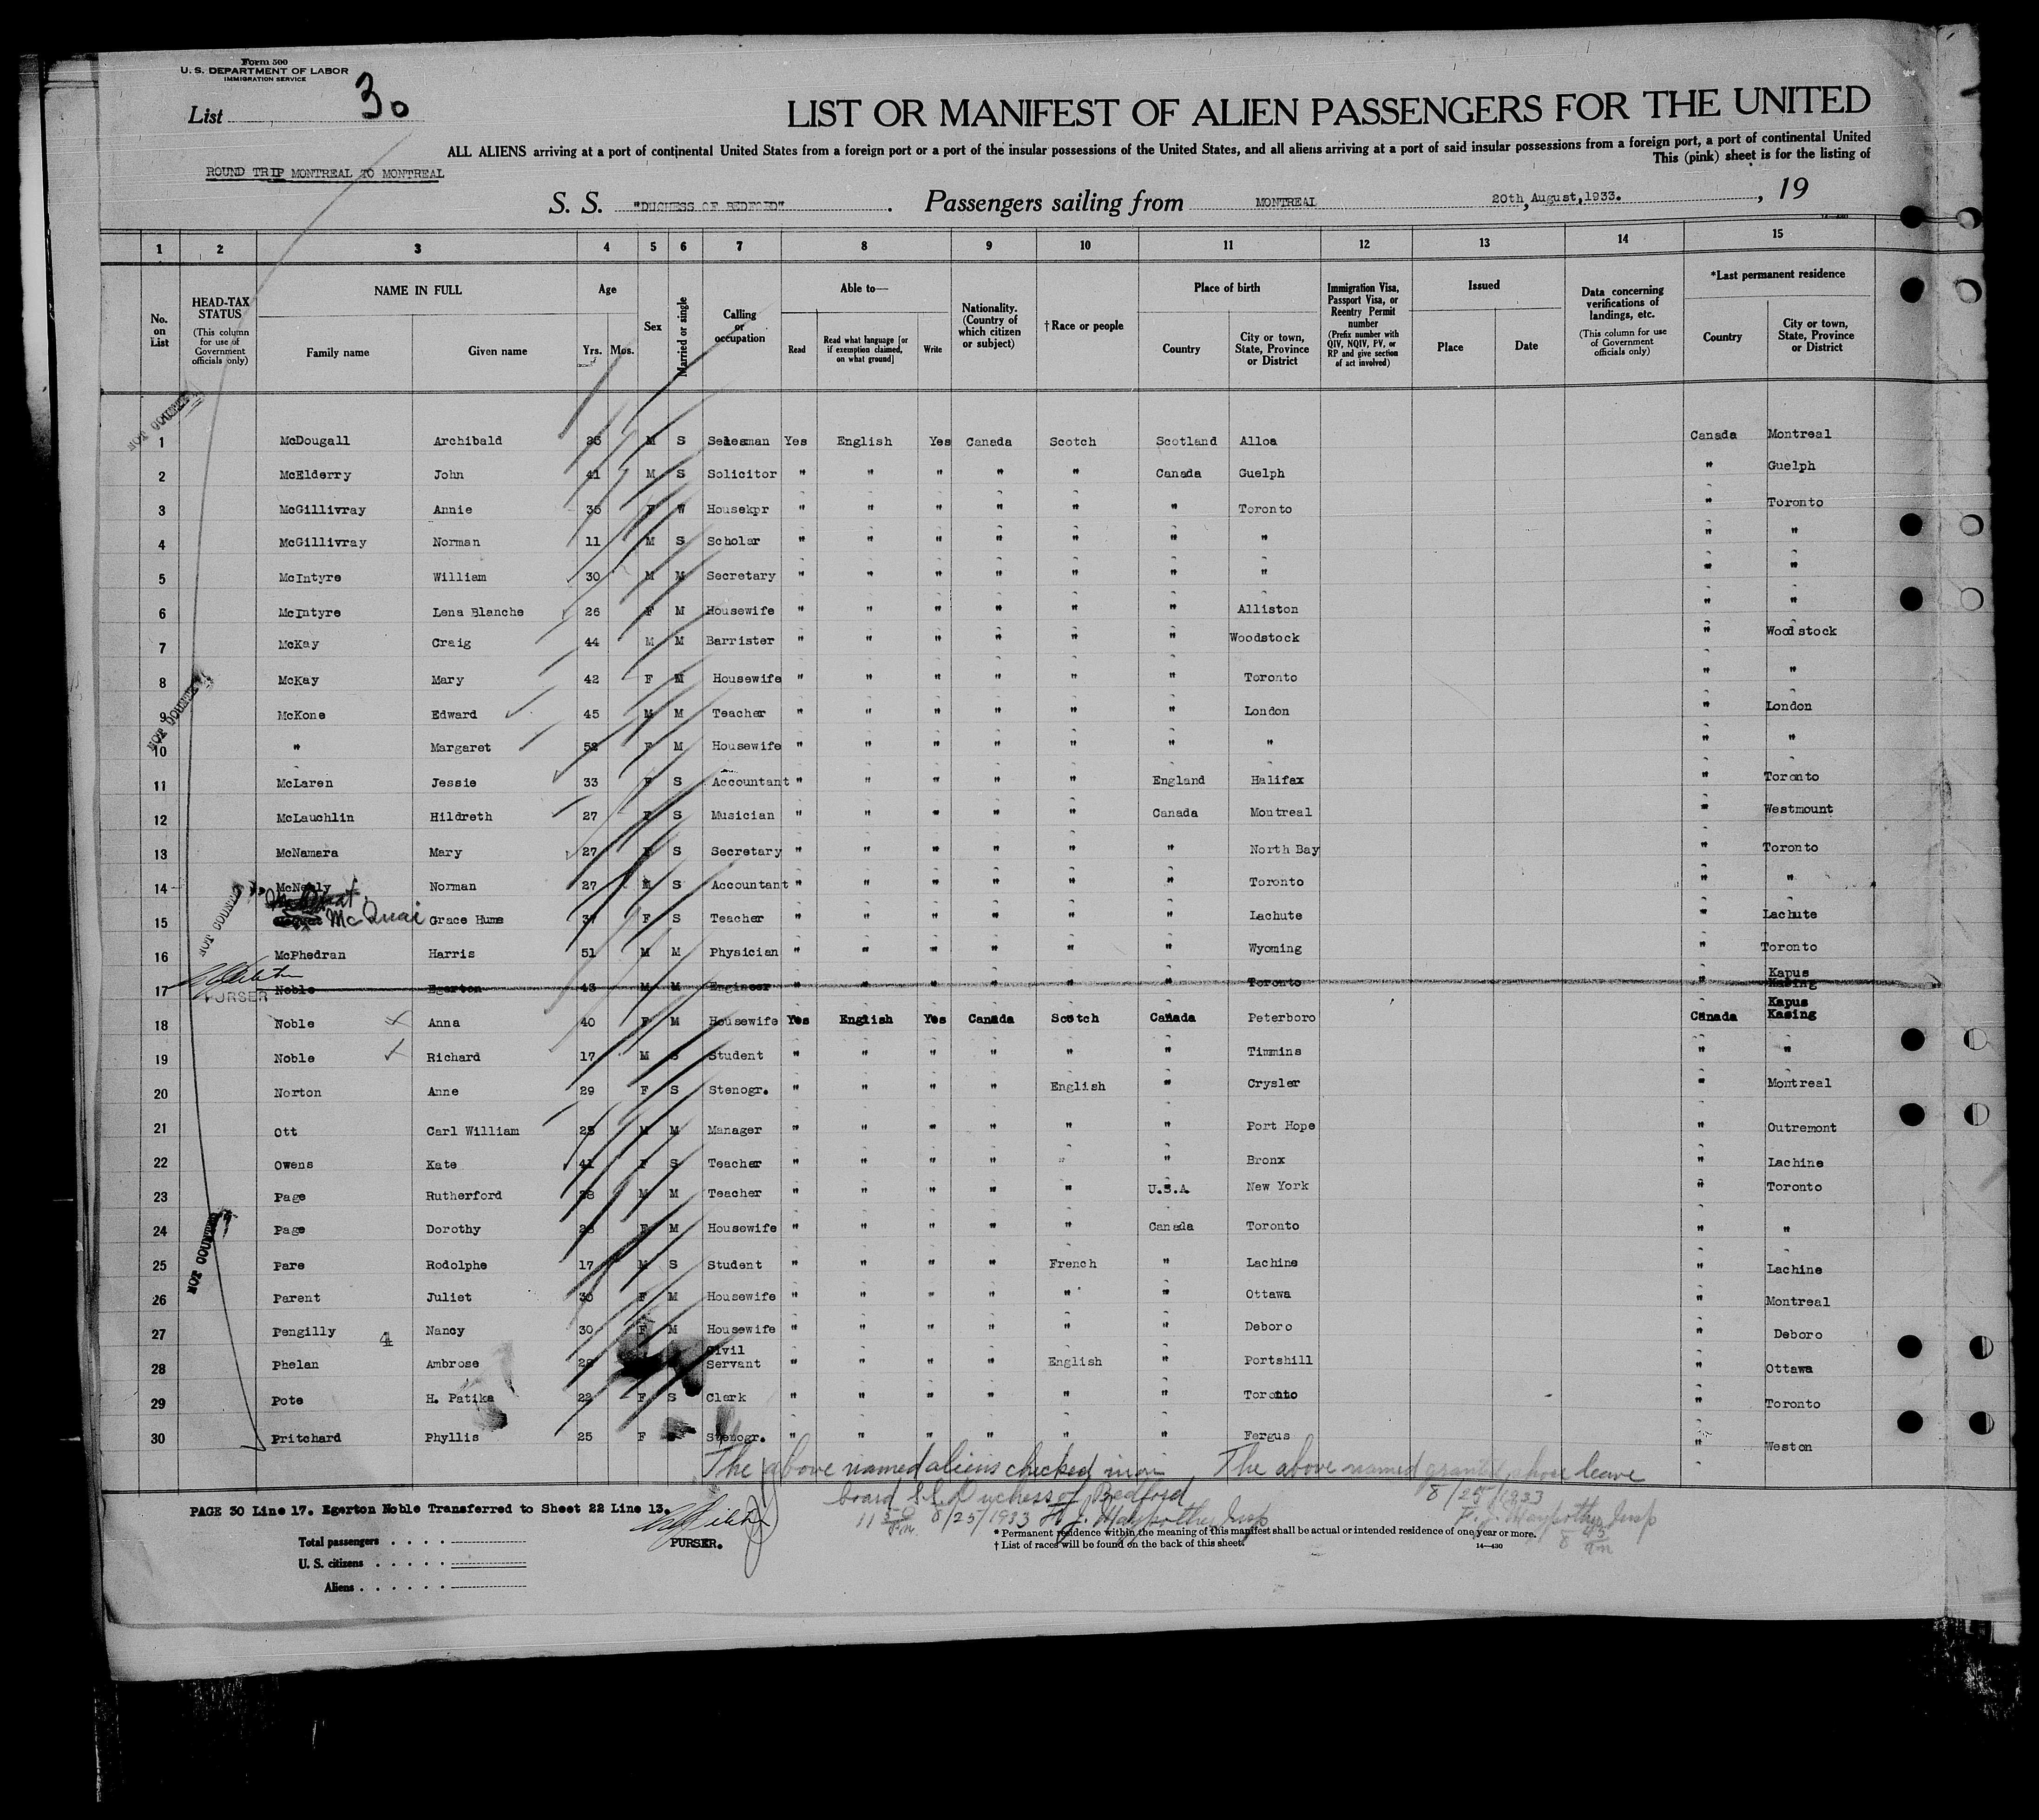 Form 500
U. S. DEPARTMENT OF LABOR
IMMIGRATION SERVICE
List 30
LIST OR MANIFEST OF ALIEN PASSENGERS FOR THE UNITED
ALL ALIENS arriving at a port of continental United States from a foreign port or a port of the insular possessions of the United States, and all aliens arriving at a port of said insular possessions from a foreign port, a port of continental United
This (pink) sheet is for the listing of
ROUND TRIP MONTREAL TO MONTREAL
S. S. "DUCHESS OF BEDFORD". Passengers sailing from MONTREAL 20th, August, 1933. , 19
1 2 3 4 5 6 7 8 9 10 11 12 13 14 15
No. on List
HEAD-TAX STATUS (This column for use of Government officials only)
NAME IN FULL
Family name Given name
Age
Yrs. Mos.
Sex
Married or single
Calling or occupation
Able to—
Read
Read what language [or if exemption claimed, on what ground]
Write
Nationality. (Country of which citizen or subject)
† Race or people
Place of birth
Country
City or town, State, Province or District
Immigration Visa, Passport Visa, or Reentry Permit number (Prefix number with QIV, NQIV, PV, or RP and give section of act involved)
Issued
Place Date
Data concerning verifications of landings, etc. (This column for use of Government officials only)
*Last permanent residence
Country
City or town, State, Province or District
NOT COUNTED
1 McDougall Archibald M S Salesman Yes English Yes Canada Scotch Scotland Alloa Canada Montreal
2 McElderry John 41 M S Solicitor " " " " " Canada Guelph " Guelph
3 McGillivray Annie F W Housekpr " " " " " " Toronto " Toronto
4 McGillivray Norman 11 M S Scholar " " " " " " " " "
5 McIntyre William 30 M M Secretary " " " " " " " " "
6 McIntyre Lena Blanche 26 F M Housewife " " " " " " Alliston " "
7 McKay Craig 44 M M Barrister " " " " " " Woodstock " Woodstock
8 McKay Mary 42 F M Housewife " " " " " " Toronto " "
NOT COUNTED
9 McKone Edward 45 M M Teacher " " " " " " London " London
10 " Margaret 52 F M Housewife " " " " " " " " "
11 McLaren Jessie 33 F S Accountant " " " " " England Halifax " Toronto
12 McLauchlin Hildreth 27 F S Musician " " " " " Canada Montreal " Westmount
13 McNamara Mary 27 F S Secretary " " " " " " North Bay " Toronto
14 McNealy Norman 27 M S Accountant " " " " " " Toronto " "
NOT COUNTED
15 McQuat Grace Hume 37 F S Teacher " " " " " " Lachute " Lachute
16 McPhedran Harris 51 M M Physician " " " " " " Wyoming " Toronto
PURSER
17 Noble Egerton 43 M M Engineer " " " " " " Toronto " Kapus Kasing
18 Noble Anna 40 F M Housewife Yes English Yes Canada Scotch Canada Peterboro Canada Kapus Kasing
19 Noble Richard 17 M S Student " " " " " " Timmins " "
20 Norton Anne 29 F S Stenogr. " " " " English " Crysler " Montreal
21 Ott Carl William M M Manager " " " " " " Port Hope " Outremont
22 Owens Kate 41 F S Teacher " " " " " " Bronx " Lachine
23 Page Rutherford 28 M M Teacher " " " " " U.S.A. New York " Toronto
24 Page Dorothy F M Housewife " " " " " Canada Toronto " "
NOT COUNTED
25 Pare Rodolphe 17 M S Student " " " " French " Lachine " Lachine
26 Parent Juliet 30 F M Housewife " " " " " " Ottawa " Montreal
27 Pengilly 4 Nancy 30 F M Housewife " " " " " " Deboro " Deboro
28 Phelan Ambrose Civil Servant " " " " English " Portshill " Ottawa
29 Pote H. Patika F S Clark " " " " " " Toronto " Toronto
30 Pritchard Phyllis 25 F Stenogr. " " " " " " Fergus " Weston
The above named aliens checked in on The above named granted shore leave
board S.S. Duchess of Bedford 8/25/1933
11 50 P.m. 8/25/1933 Insp Insp 8 45
PAGE 30 Line 17. Egerton Noble Transferred to Sheet 22 Line 13.
PURSER.
* Permanent residence within the meaning of this manifest shall be actual or intended residence of one year or more.
† List of races will be found on the back of this sheet.
14—430
Total passengers
U. S. citizens
Aliens